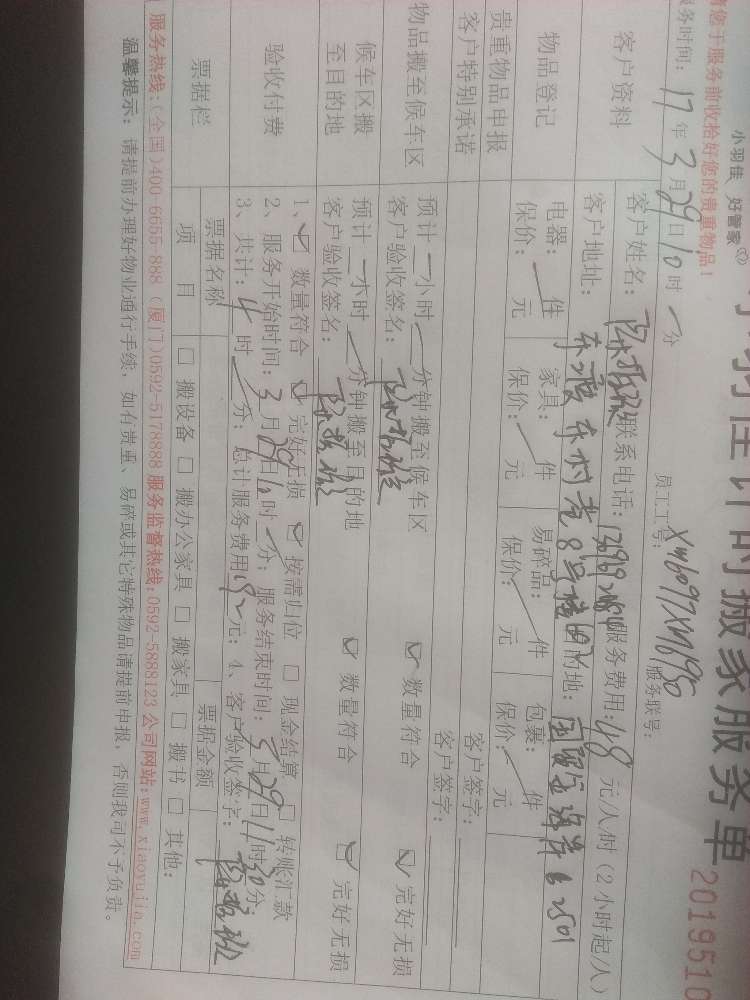 小羽佳 好管家
时搬家服务单 2019510
您于服务前收拾好您的贵重物品!
员工工号: XM6097XM6950 服务联号:
服务时间: 17 年 3 月 29 日 10 时 分
客户资料
客户姓名: 联系电话: 服务费用: 48 元/人/时 (2小时起/人)
客户地址: 东渡 8号 目的地: 海岸 B 2501
物品登记
电器: 件 家具: 件 易碎品: 件 包裹: 件
保价: 元 保价: 元 保价: 元 保价: 元
贵重物品申报
客户签字:
客户特别承诺
客户签字:
物品搬至候车区
预计 小时 分钟搬至候车区 ☑ 数量符合 ☑ 完好无损
客户验收签名:
候车区搬至目的地
预计 小时 分钟搬至目的地 ☑ 数量符合 ☑ 完好无损
客户验收签名:
验收付费
1、☑ 数量符合 ☑ 完好无损 ☑ 按需归位 □ 现金结算 □ 转账汇款
2、服务开始时间: 3 月 29 日 10 时 分; 服务结束时间: 3 月 29 日 11 时 30 分;
3、共计: 4 时 分; 总计服务费用: 192 元; 4、客户验收签字:
票据栏
票据名称 票据金额
项目 □ 搬设备 □ 搬办公家具 □ 搬家具 □ 搬书 □ 其他:
服务热线:(全国)400-6655-888 (厦门)0592-5178888 服务监督热线:0592-5888123 公司网站:www.xiaoyujia.com
温馨提示: 请提前办理好物业通行手续, 如有贵重、易碎或其它特殊物品请提前申报, 否则我司不予负责。